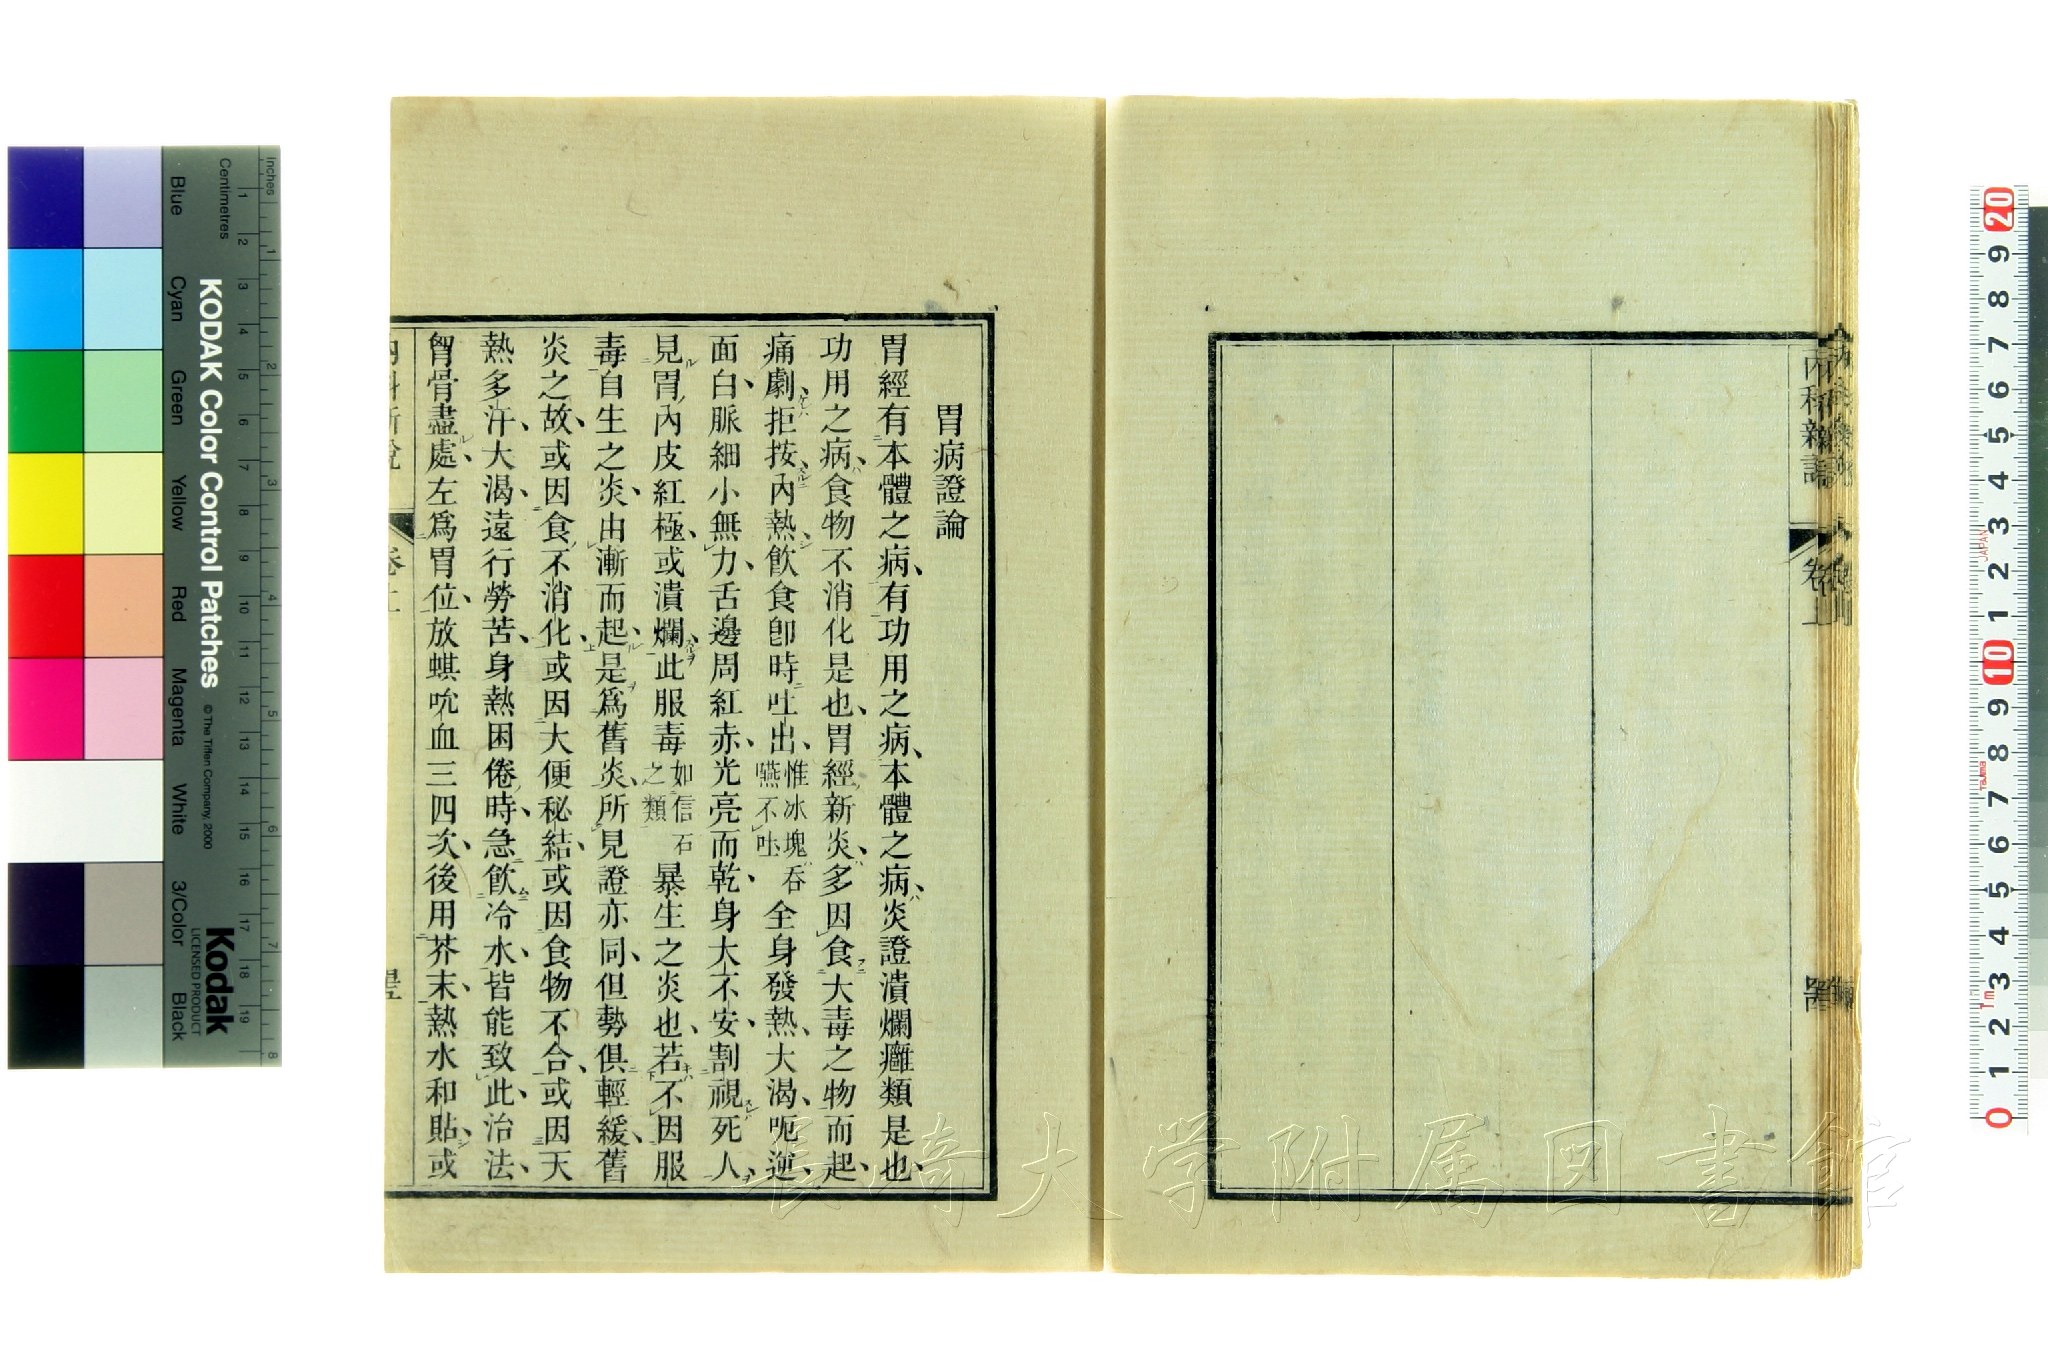 內科新說
卷上
胃病證論
胃經有本體之病、有功用之病、本體之病、炎證潰爛癰類是也、
功用之病、食物不消化是也、胃經新炎、多因食大毒之物而起、
痛劇拒按、內熱、飲食卽時吐出、惟冰塊吞嚥不吐全身發熱、大渴、呃逆、
面白、脈細小無力、舌邊周紅赤、光亮而乾、身大不安、割視死人、
見胃內皮紅極、或潰爛、此服毒如信石之類暴生之炎也、若不因服
毒自生之炎、由漸而起、是爲舊炎、所見證亦同、但勢俱輕緩、舊
炎之故、或因食不消化、或因大便秘結、或因食物不合、或因天
熱多汗、大渴、遠行勞苦、身熱困倦時、急飲冷水、皆能致此、治法、
胷骨盡處、左爲胃位、放蜞吮血三四次、後用芥末、熱水和貼、或
內科新說
卷上
KODAK Color Control Patches
© The Tiffen Company, 2000
Kodak
LICENSED PRODUCT
Inches
Centimetres
Blue
Cyan
Green
Yellow
Red
Magenta
White
3/Color
Black
1 2 3 4 5 6 7 8 9 10 11 12 13 14 15 16 17 18 19
1 2 3 4 5 6 7 8
20 9 8 7 6 5 4 3 2 1 10 9 8 7 6 5 4 3 2 1 0
JAPAN
Tajima
長崎大学附属図書館